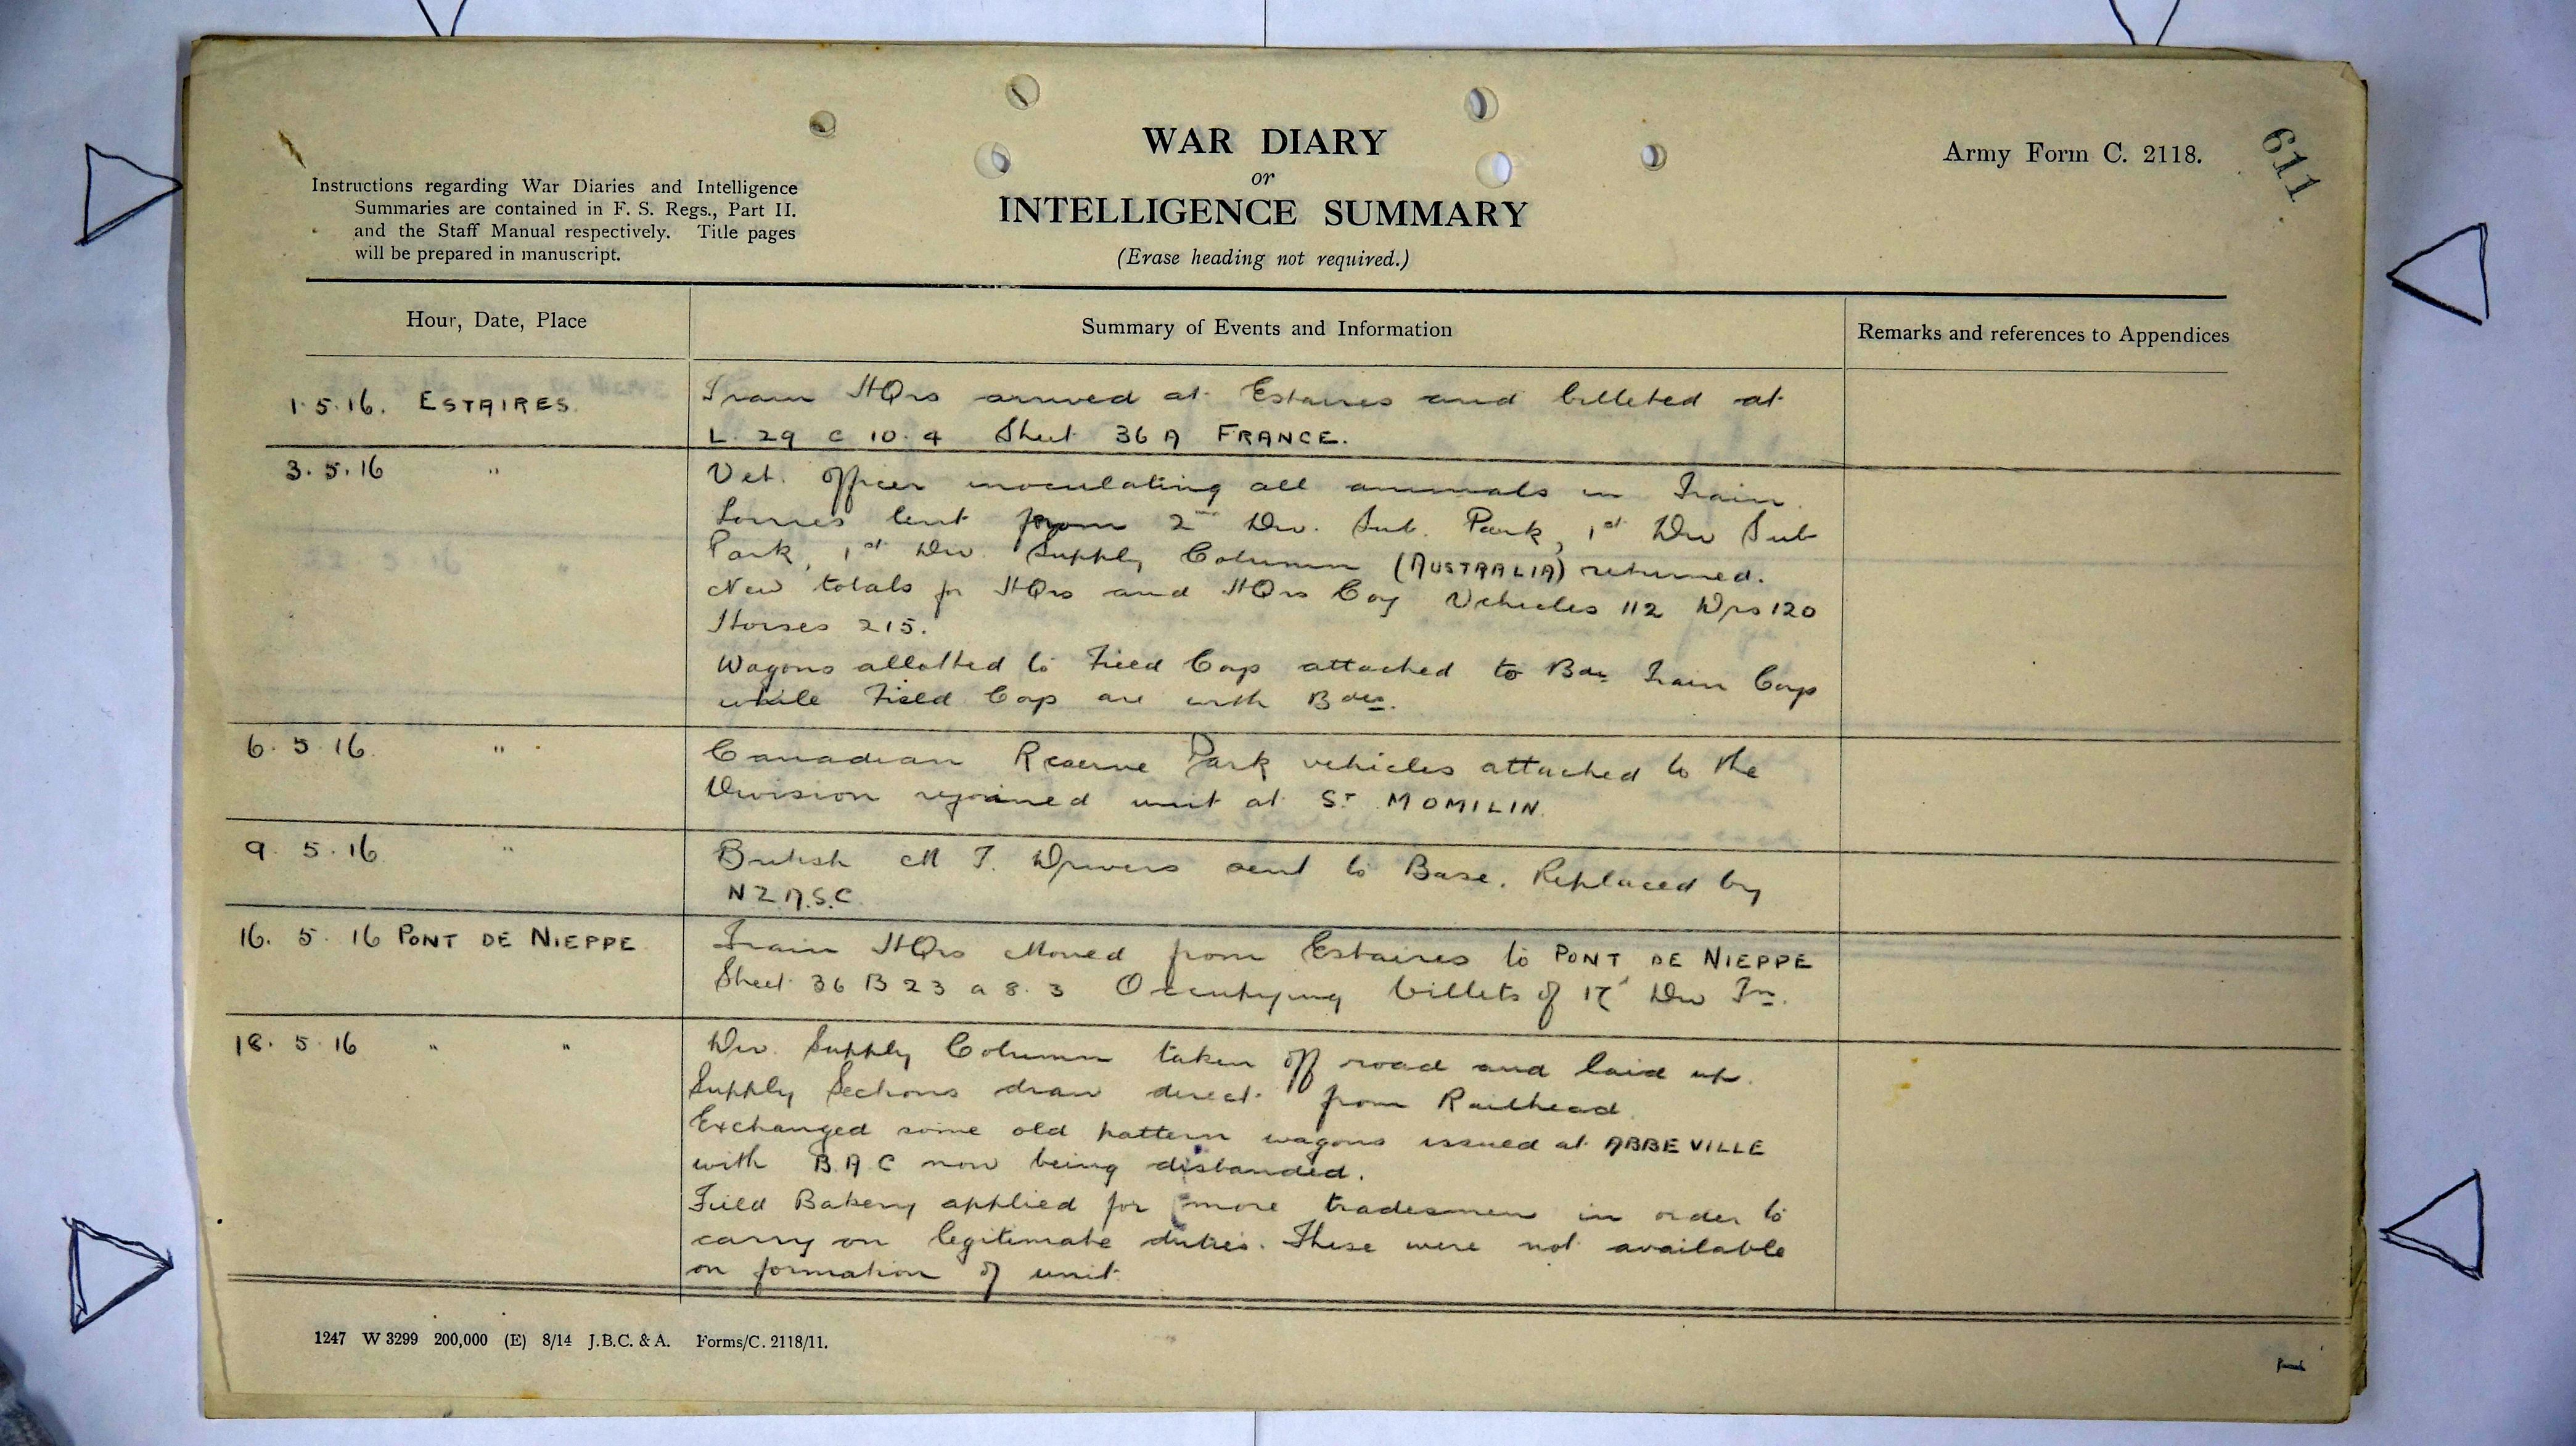 WAR DIARY
or
INTELLIGENCE SUMMARY
(Erase heading not required.)
Army Form C. 2118.
611
Instructions regarding War Diaries and Intelligence
Summaries are contained in F. S. Regs., Part II.
and the Staff Manual respectively. Title pages
will be prepared in manuscript.
Hour, Date, Place
Summary of Events and Information
Remarks and references to Appendices
1.5.16. ESTAIRES.
Train HQrs arrived at Estaires and billeted at
L. 29 c 10.4 Sheet 36 A FRANCE.
3.5.16 "
Vet. Officer inoculating all animals in Train.
Lorries lent from 2nd Div. Sub. Park, 1st Div Sub
Park, 1st Div. Supply Column (AUSTRALIA) returned.
New totals for HQrs and HQrs Coy Vehicles 112 Drs 120
Horses 215.
Wagons allotted to Field Coys attached to Bde Train Coys
while Field Coys are with Bdes.
6.5.16. "
Canadian Reserve Park vehicles attached to the
Division rejoined unit at ST MOMILIN.
9.5.16 "
British M T. Drivers sent to Base. Replaced by
N Z A.S.C.
16.5.16 PONT DE NIEPPE
Train HQrs Moved from Estaires to PONT DE NIEPPE
Sheet 36 B 23 a 8.3 Occupying billets of 17 Div Tn.
18.5.16 " "
Div. Supply Column taken off road and laid up.
Supply Sections draw direct from Railhead.
Exchanged some old pattern wagons issued at ABBEVILLE
with B.A.C now being disbanded.
Field Bakery applied for more tradesmen in order to
carry on legitimate duties. These were not available
on formation of unit
1247 W 3299 200,000 (E) 8/14 J.B.C. & A. Forms/C. 2118/11.